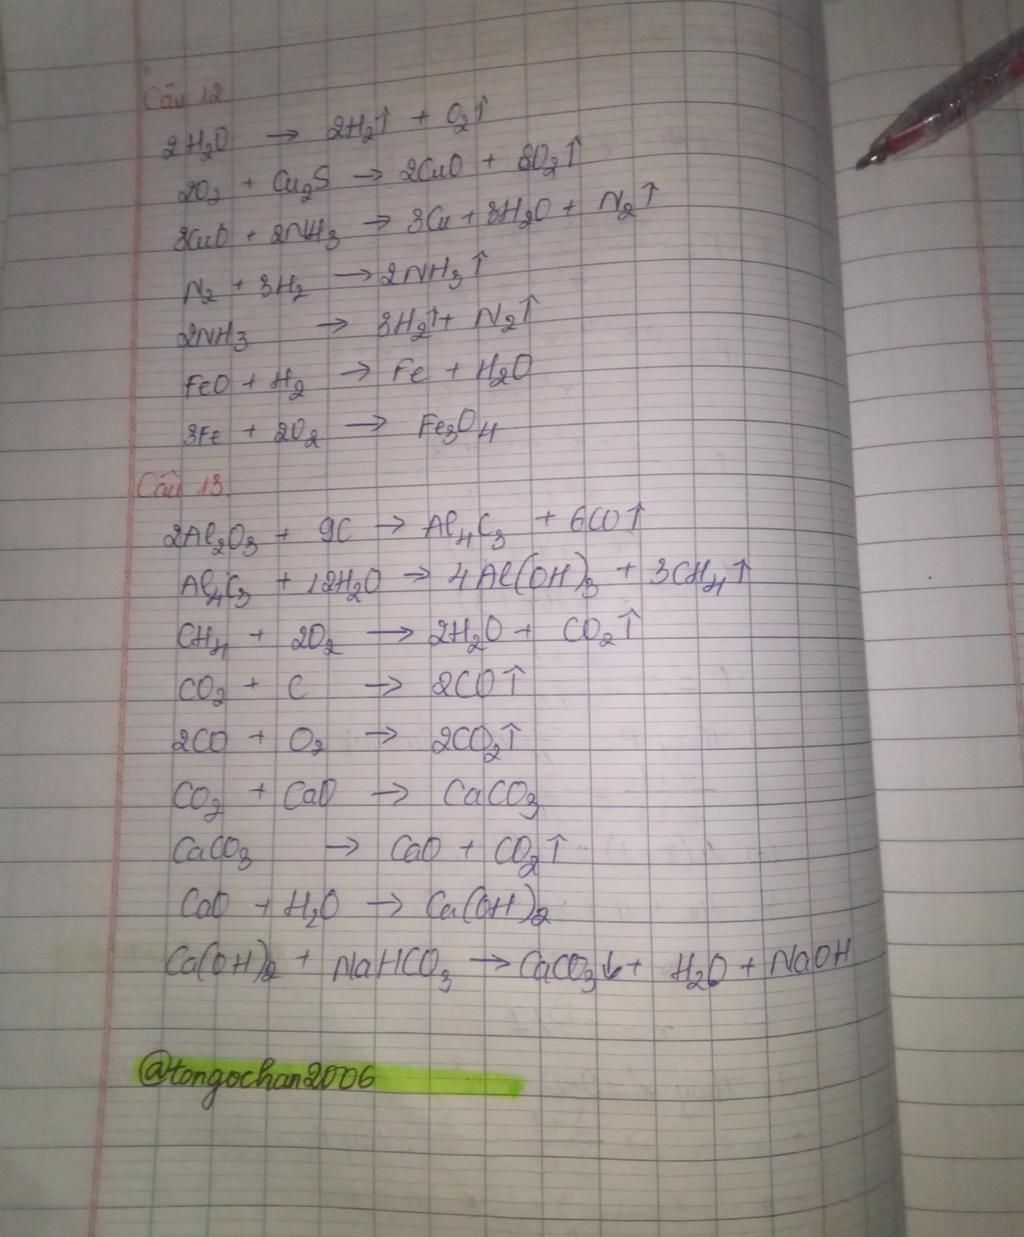 Câu 12
2H₂O → 2H₂↑ + O₂↑
2O₂ + Cu₂S → 2CuO + SO₂↑
3CuO + 2NH₃ → 3Cu + 3H₂O + N₂↑
N₂ + 3H₂ → 2NH₃↑
2NH₃ → 3H₂↑ + N₂↑
FeO + H₂ → Fe + H₂O
3Fe + 2O₂ → Fe₃O₄
Câu 13
2Al₂O₃ + 9C → Al₄C₃ + 6CO↑
Al₄C₃ + 12H₂O → 4Al(OH)₃ + 3CH₄↑
CH₄ + 2O₂ → 2H₂O + CO₂↑
CO₂ + C → 2CO↑
2CO + O₂ → 2CO₂↑
CO₂ + CaO → CaCO₃
CaCO₃ → CaO + CO₂↑
CaO + H₂O → Ca(OH)₂
Ca(OH)₂ + NaHCO₃ → CaCO₃↓ + H₂O + NaOH
@tongochan2006